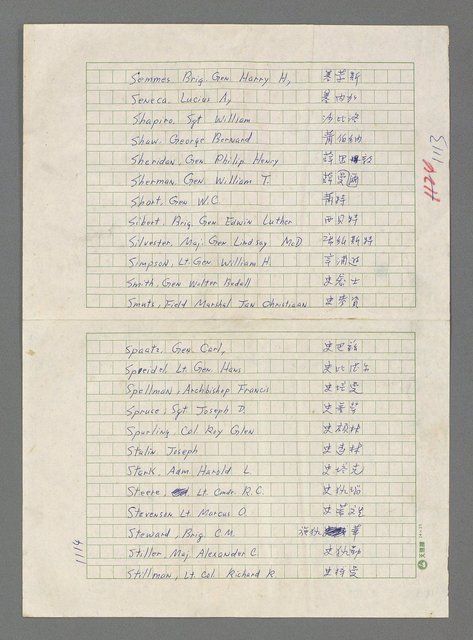 Semmes. Brig. Gen. Harry H,
Seneca. Lucius A,
Shapiro. Sgt William 沙比洛
Shaw. George Bernard 蕭伯納
Sheridan, Gen. Philip Henry
Sherman. Gen. William T. 薛曼
Short. Gen W.C. 蕭特
Sibert, Brig. Gen. Edwin Luther 西貝特
Silvester. Maj. Gen. Lindsay McD
Simpson, Lt. Gen William H. 辛浦遜
Smith, Gen Walter Bedell 史密士
Smuts, Field Marshal Jan Christiaan 史麥資
1113
Spaatz, Gen. Carl, 史巴茲
Speidel, Lt. Gen. Hans
Spellman, Archbishop Francis 史培曼
Spruse, Sgt Joseph D.
Spurling. Col. Roy Glen
Stalin Joseph 史達林
Stark, Adm. Harold L. 史塔克
Steere, Lt Cmdr. R.C.
Stevenson Lt. Marcus O.
Steward, Brig. C.M.
Stiller, Maj Alexander C. 史狄勒
Stillman, Lt Col. Richard R 史特曼
1114